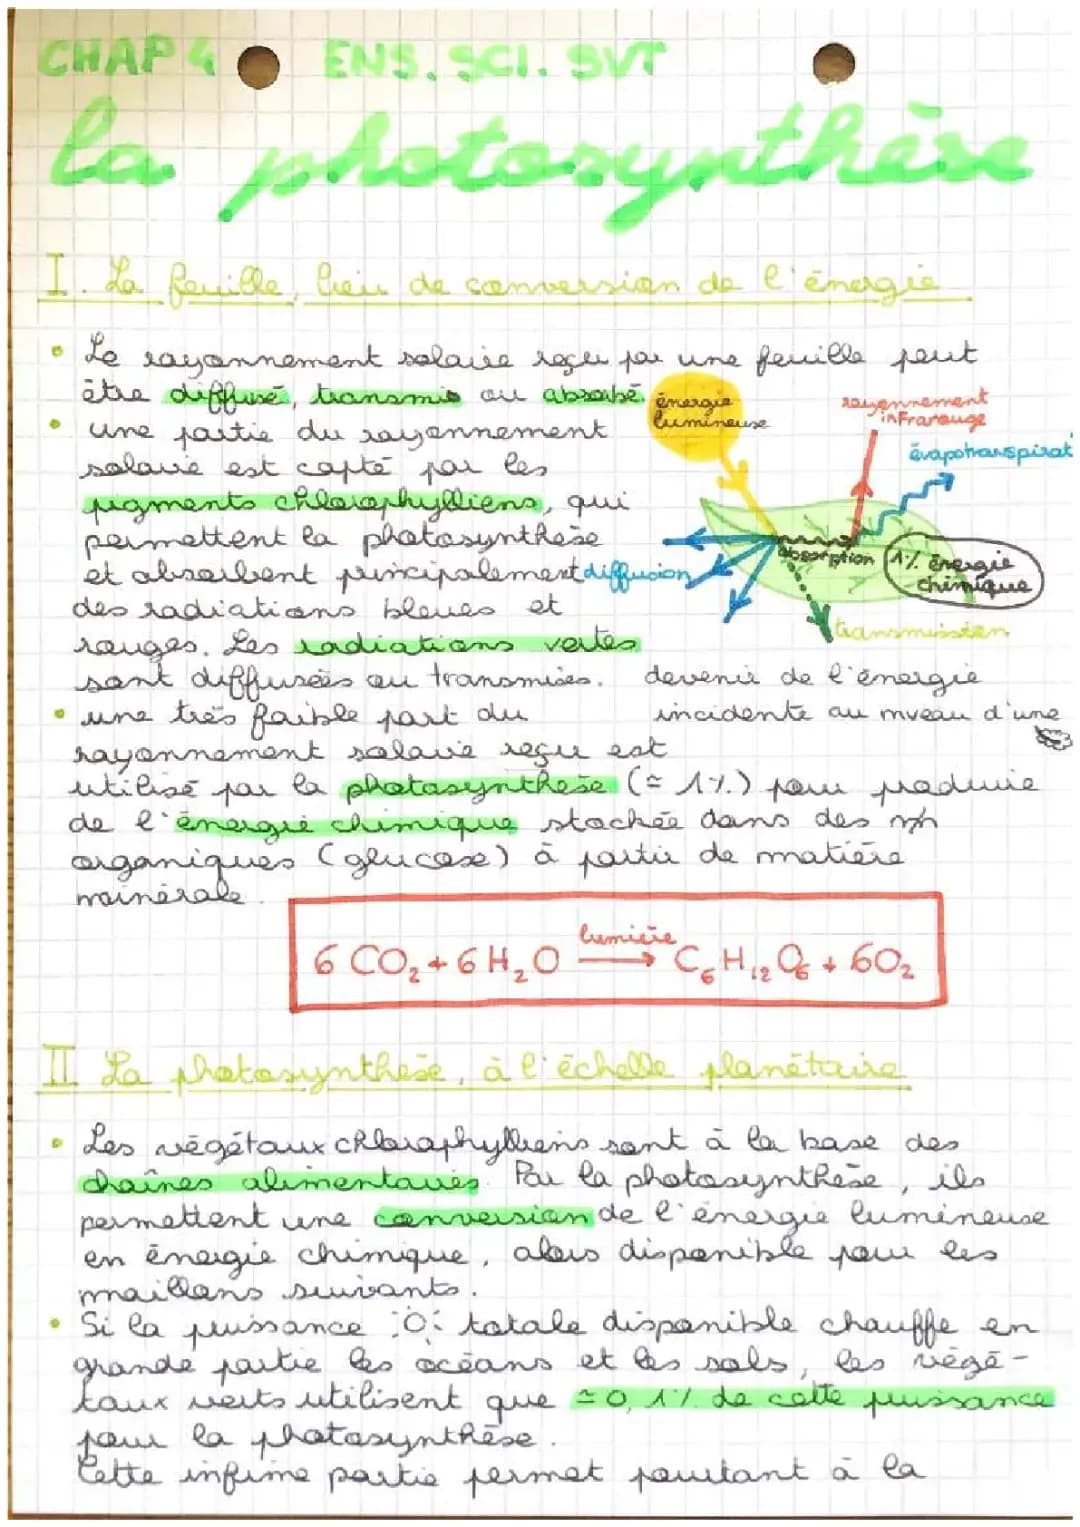 CHAP 4 ENS. SCI. SVT
La photosynthèse
I. La feuille, lieu de conversion de l'énergie
• Le rayonnement solaire reçu par une feuille peut
être diffusé, transmis ou absorbé.
• une partie du rayonnement
solaire est capté par les
pigments chlorophylliens, qui
permettent la photosynthèse
et absorbent principalement
des radiations bleues et
rouges. Les radiations vertes
sont diffusées ou transmises.
énergie
lumineuse
rayonnement
infrarouge
évapotranspirat
absorption
1% énergie
chimique
diffusion
transmission
devenir de l'énergie
incidente au niveau d'une
• une très faible part du
rayonnement solaire reçu est
utilisé par la photosynthèse (≃ 1%) pour produire
de l'énergie chimique stockée dans des
organiques (glucose) à partir de matière
minérale.
6 CO₂ + 6 H₂O lumière → C₆H₁₂O₆ + 6O₂
II La photosynthèse, à l'échelle planétaire
• Les végétaux chlorophylliens sont à la base des
chaînes alimentaires. Par la photosynthèse, ils
permettent une conversion de l'énergie lumineuse
en énergie chimique, alors disponible pour les
maillons suivants.
• Si la puissance totale disponible chauffe en
grande partie les océans et les sols, les végé-
taux verts utilisent que ≃ 0,1% de cette puissance
pour la photosynthèse.
Cette infime partie permet pourtant à la